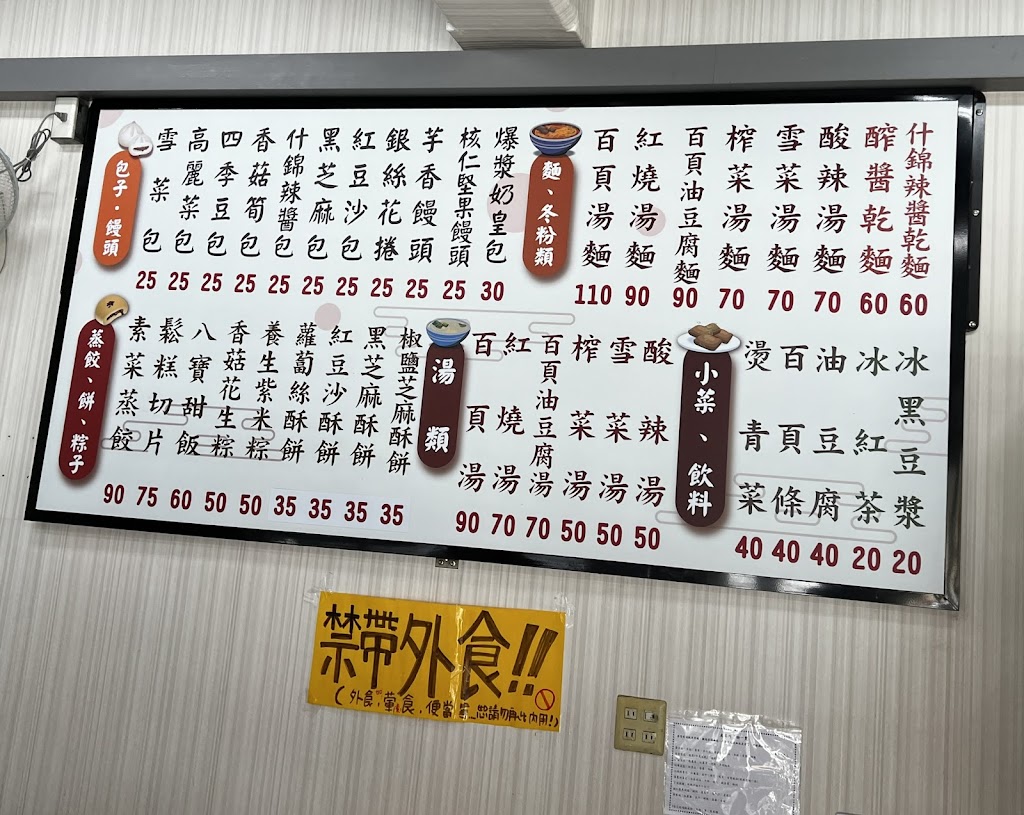 包子·饅頭
雪菜包 25
高麗菜包 25
四季豆包 25
香菇筍包 25
什錦辣醬包 25
黑芝麻包 25
紅豆沙包 25
銀絲花捲 25
芋香饅頭 25
核仁堅果饅頭 25
爆漿奶皇包 30
麵、冬粉類
百頁湯麵 110
紅燒湯麵 90
百頁油豆腐麵 90
榨菜湯麵 70
雪菜湯麵 70
酸辣湯麵 70
醡醬乾麵 60
什錦辣醬乾麵 60
蒸餃、餅、粽子
素菜蒸餃 90
鬆糕切片 75
八寶甜飯 60
香菇花生粽 50
養生紫米粽 50
蘿蔔絲酥餅 35
紅豆沙酥餅 35
黑芝麻酥餅 35
椒鹽芝麻酥餅 35
湯類
百頁湯 90
紅燒湯 70
百頁油豆腐湯 70
榨菜湯 50
雪菜湯 50
酸辣湯 50
小菜、飲料
燙青菜 40
百頁條 40
油豆腐 40
冰紅茶 20
冰黑豆漿 20
禁帶外食!!
(外食,葷食,便當